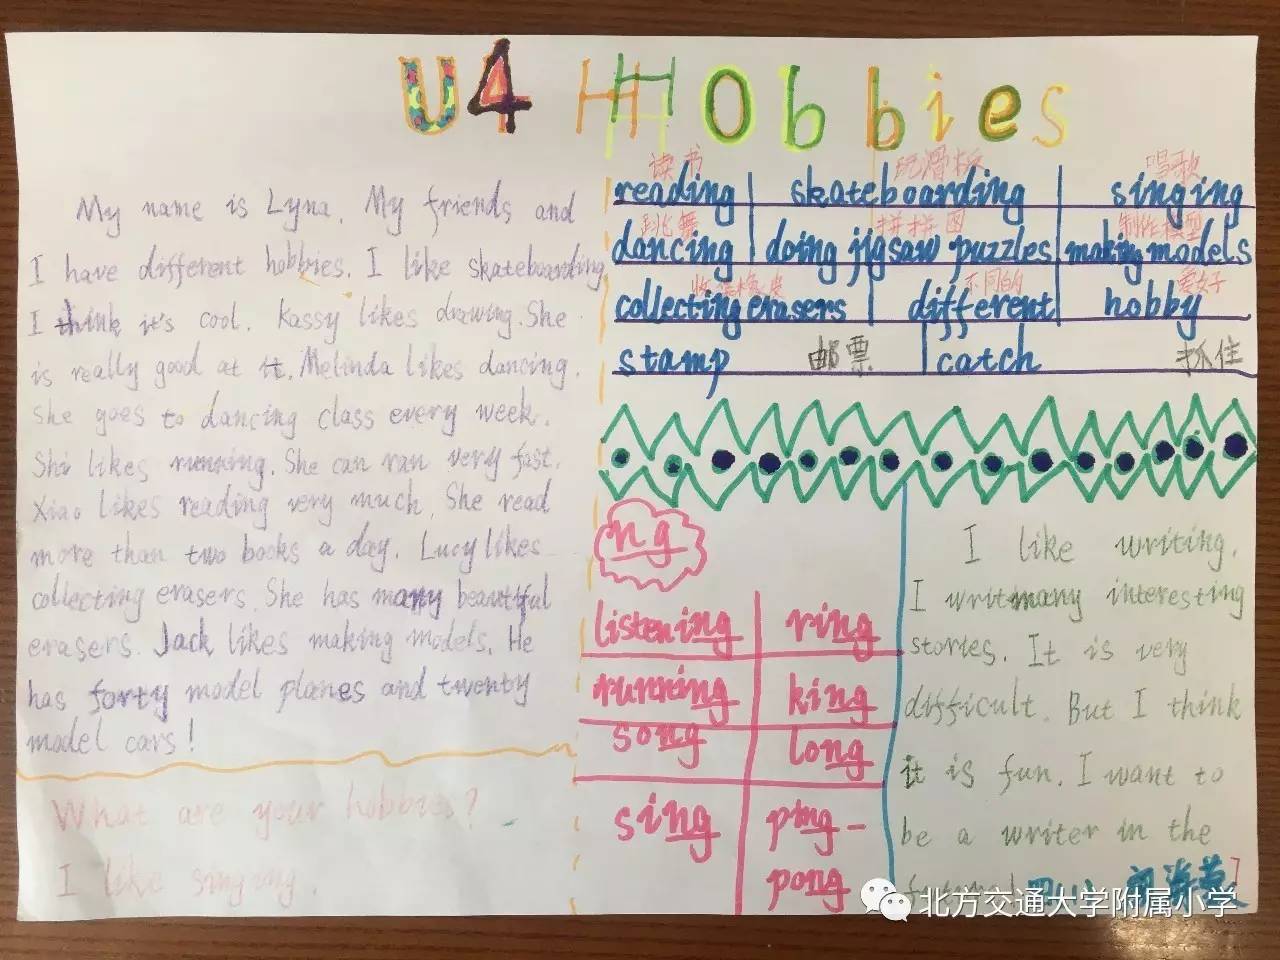 U4 Hobbies
My name is Lyna. My friends and
I have different hobbies. I like skateboarding
I think it's cool. Kassy likes drawing. She
is really good at it. Melinda likes dancing.
She goes to dancing class every week.
Shi likes running. She can ran very fast.
Xiao likes reading very much. She read
more than two books a day. Lucy likes
collecting erasers. She has many beautiful
erasers. Jack likes making models. He
has forty model planes and twenty
model cars!
What are your hobbies?
I like singing.
读书 玩滑板 唱歌
reading skateboarding singing
跳舞 拼拼图 制作模型
dancing doing jigsaw puzzles making models
不同的 爱好
collecting erasers different hobby
stamp 邮票 catch 抓住
ng
listening ring
running king
song long
sing ping-
pong
I like writing.
I writ many interesting
stories. It is very
difficult. But I think
it is fun. I want to
be a writer in the
北方交通大学附属小学